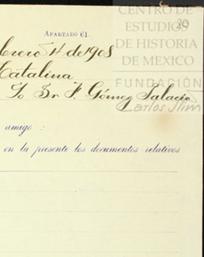 CENTRO DE
ESTUDIOS
DE HISTORIA
DE MEXICO
FUNDACIÓN
Carlos Slim
20
APARTADO 61.
Enero 4 de 1908
Catalina
Sr. F. Gómez Palacio
amigo:
en la presente los documentos relativos